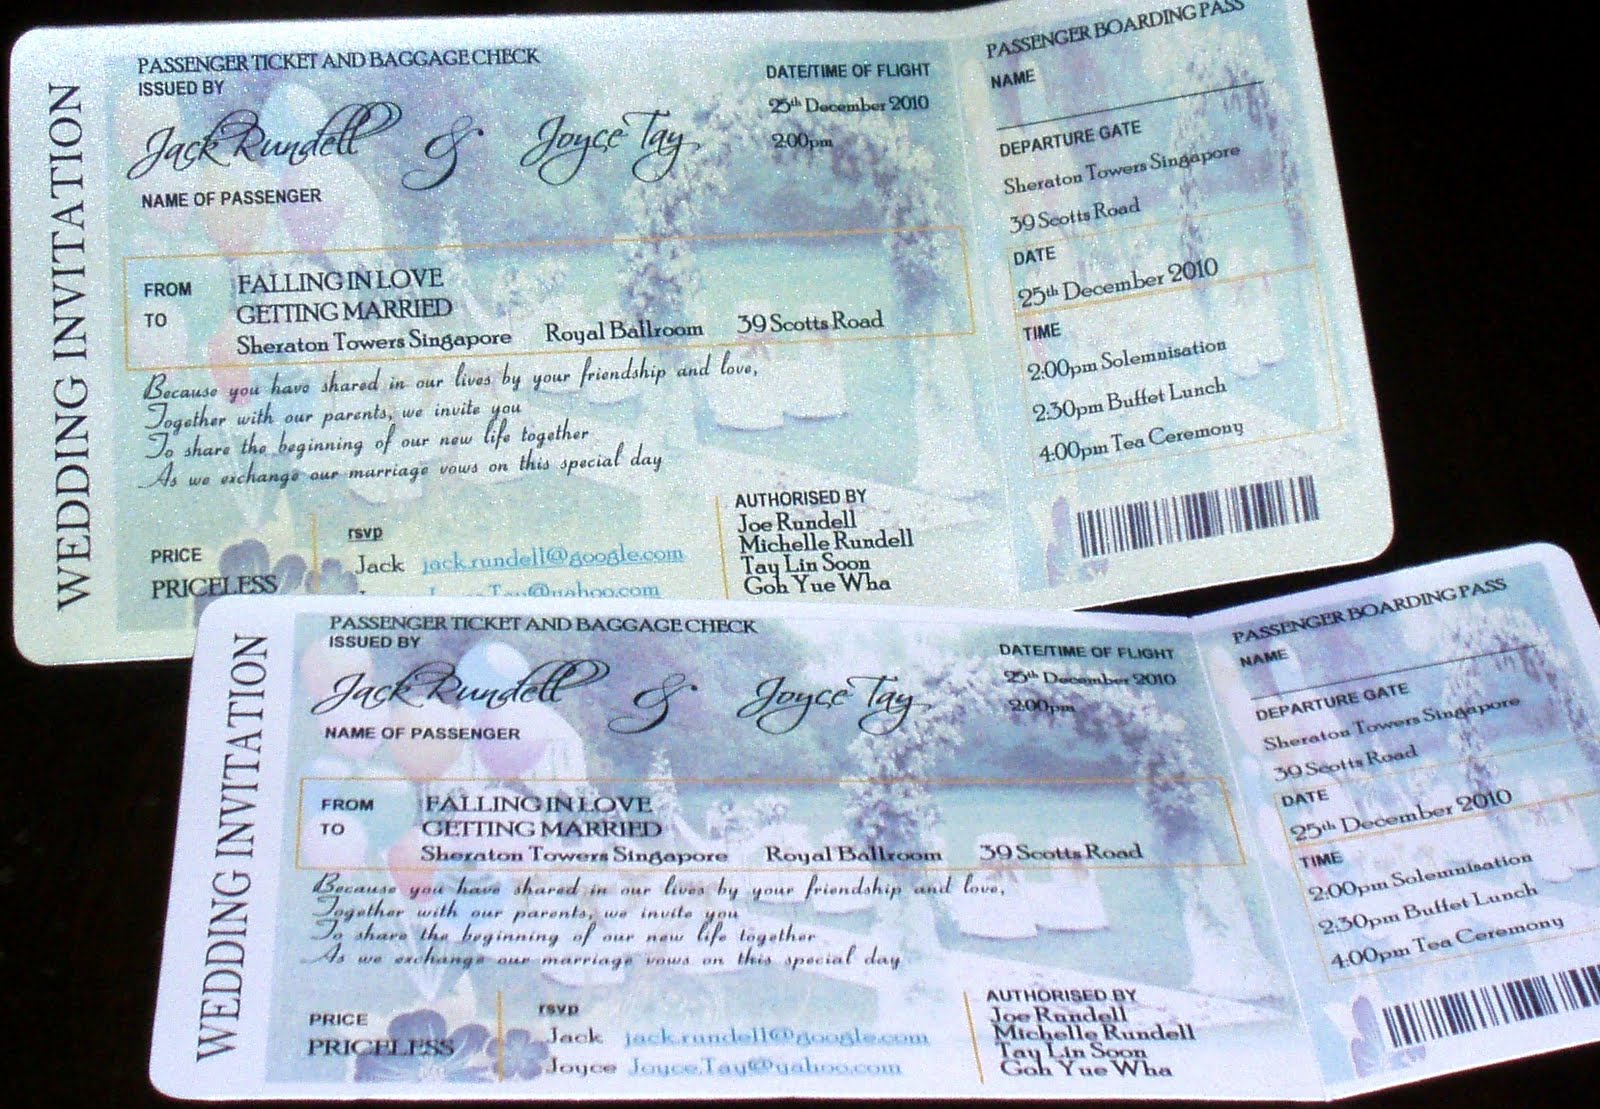 WEDDING INVITATION
PASSENGER TICKET AND BAGGAGE CHECK
ISSUED BY
Jack Rundell & Joyce Tay
NAME OF PASSENGER
DATE/TIME OF FLIGHT
25th December 2010
2:00pm
FROM FALLING IN LOVE
TO GETTING MARRIED
Sheraton Towers Singapore Royal Ballroom 39 Scotts Road
Because you have shared in our lives by your friendship and love,
Together with our parents, we invite you
To share the beginning of our new life together
As we exchange our marriage vows on this special day
PRICE
PRICELESS
rsvp
Jack jack.rundell@google.com
Joyce.Tay@yahoo.com
AUTHORISED BY
Joe Rundell
Michelle Rundell
Tay Lin Soon
Goh Yue Wha
PASSENGER BOARDING PASS
NAME
DEPARTURE GATE
Sheraton Towers Singapore
39 Scotts Road
DATE
25th December 2010
TIME
2:00pm Solemnisation
2:30pm Buffet Lunch
4:00pm Tea Ceremony
WEDDING INVITATION
PASSENGER TICKET AND BAGGAGE CHECK
ISSUED BY
Jack Rundell & Joyce Tay
NAME OF PASSENGER
DATE/TIME OF FLIGHT
25th December 2010
2:00pm
FROM FALLING IN LOVE
TO GETTING MARRIED
Sheraton Towers Singapore Royal Ballroom 39 Scotts Road
Because you have shared in our lives by your friendship and love,
Together with our parents, we invite you
To share the beginning of our new life together
As we exchange our marriage vows on this special day
PRICE
PRICELESS
rsvp
Jack jack.rundell@google.com
Joyce Joyce.Tay@yahoo.com
AUTHORISED BY
Joe Rundell
Michelle Rundell
Tay Lin Soon
Goh Yue Wha
PASSENGER BOARDING PASS
NAME
DEPARTURE GATE
Sheraton Towers Singapore
39 Scotts Road
DATE
25th December 2010
TIME
2:00pm Solemnisation
2:30pm Buffet Lunch
4:00pm Tea Ceremony